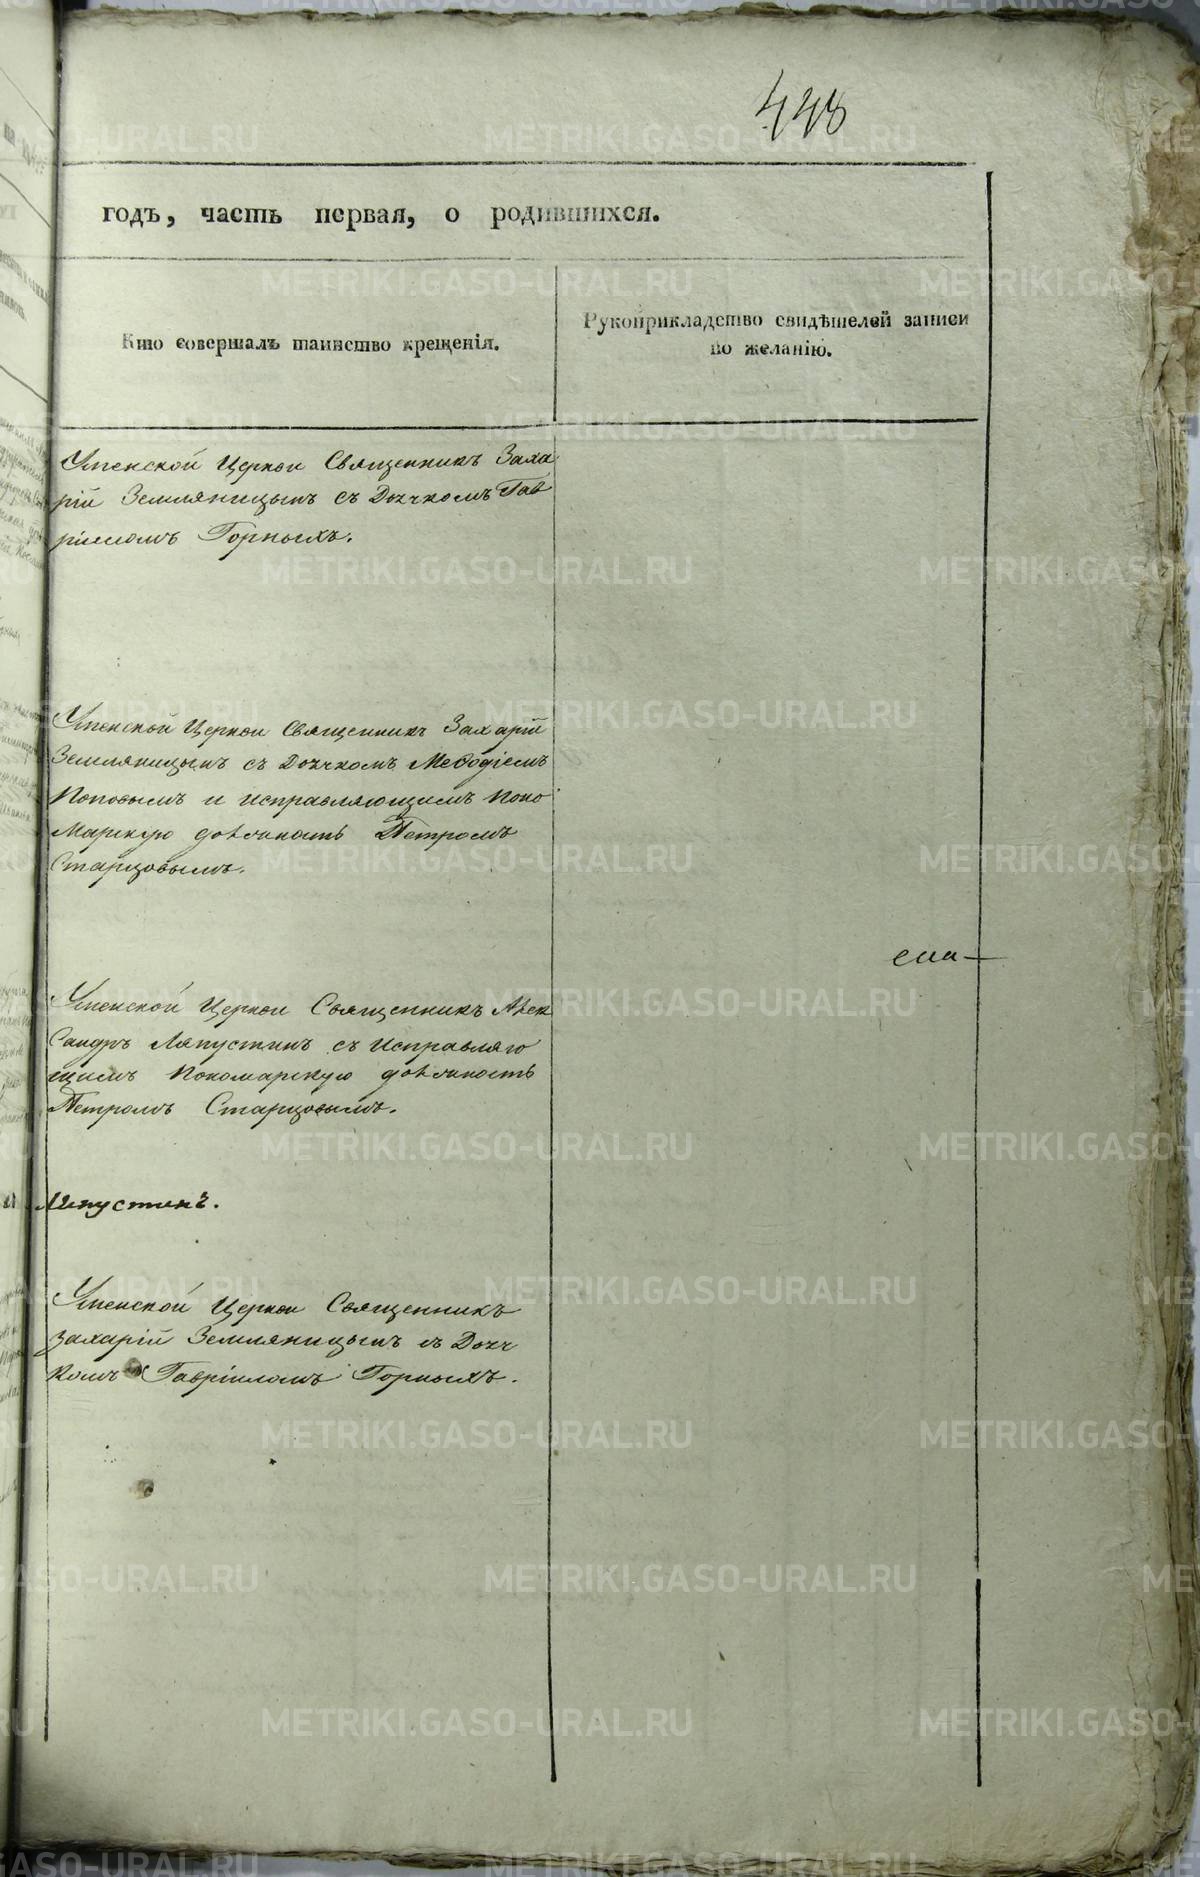 448
годъ, часть первая, о родившихся.
Кто совершалъ таинство крещенія.
Рукоприкладство свидѣтелей записи
по желанію.
Успенской Церкви Священникъ Заха
рій Земляницынъ съ Дьячкомъ Гав
ріиломъ Горныхъ.
Успенской Церкви Священникъ Захарій
Земляницынъ съ Дьячкомъ Меѳодіемъ
Поповымъ и исправляющимъ поно
марскую должность Петромъ
Старцовымъ.
Успенской Церкви Священникъ Алек
сандръ Ляпустинъ съ исправляю
щимъ пономарскую должность
Петромъ Старцовымъ.
Ляпустинъ.
Успенской Церкви Священникъ
Захарій Земляницынъ съ Дьяч
комъ Гавріиломъ Горныхъ.
METRIKI.GASO-URAL.RU